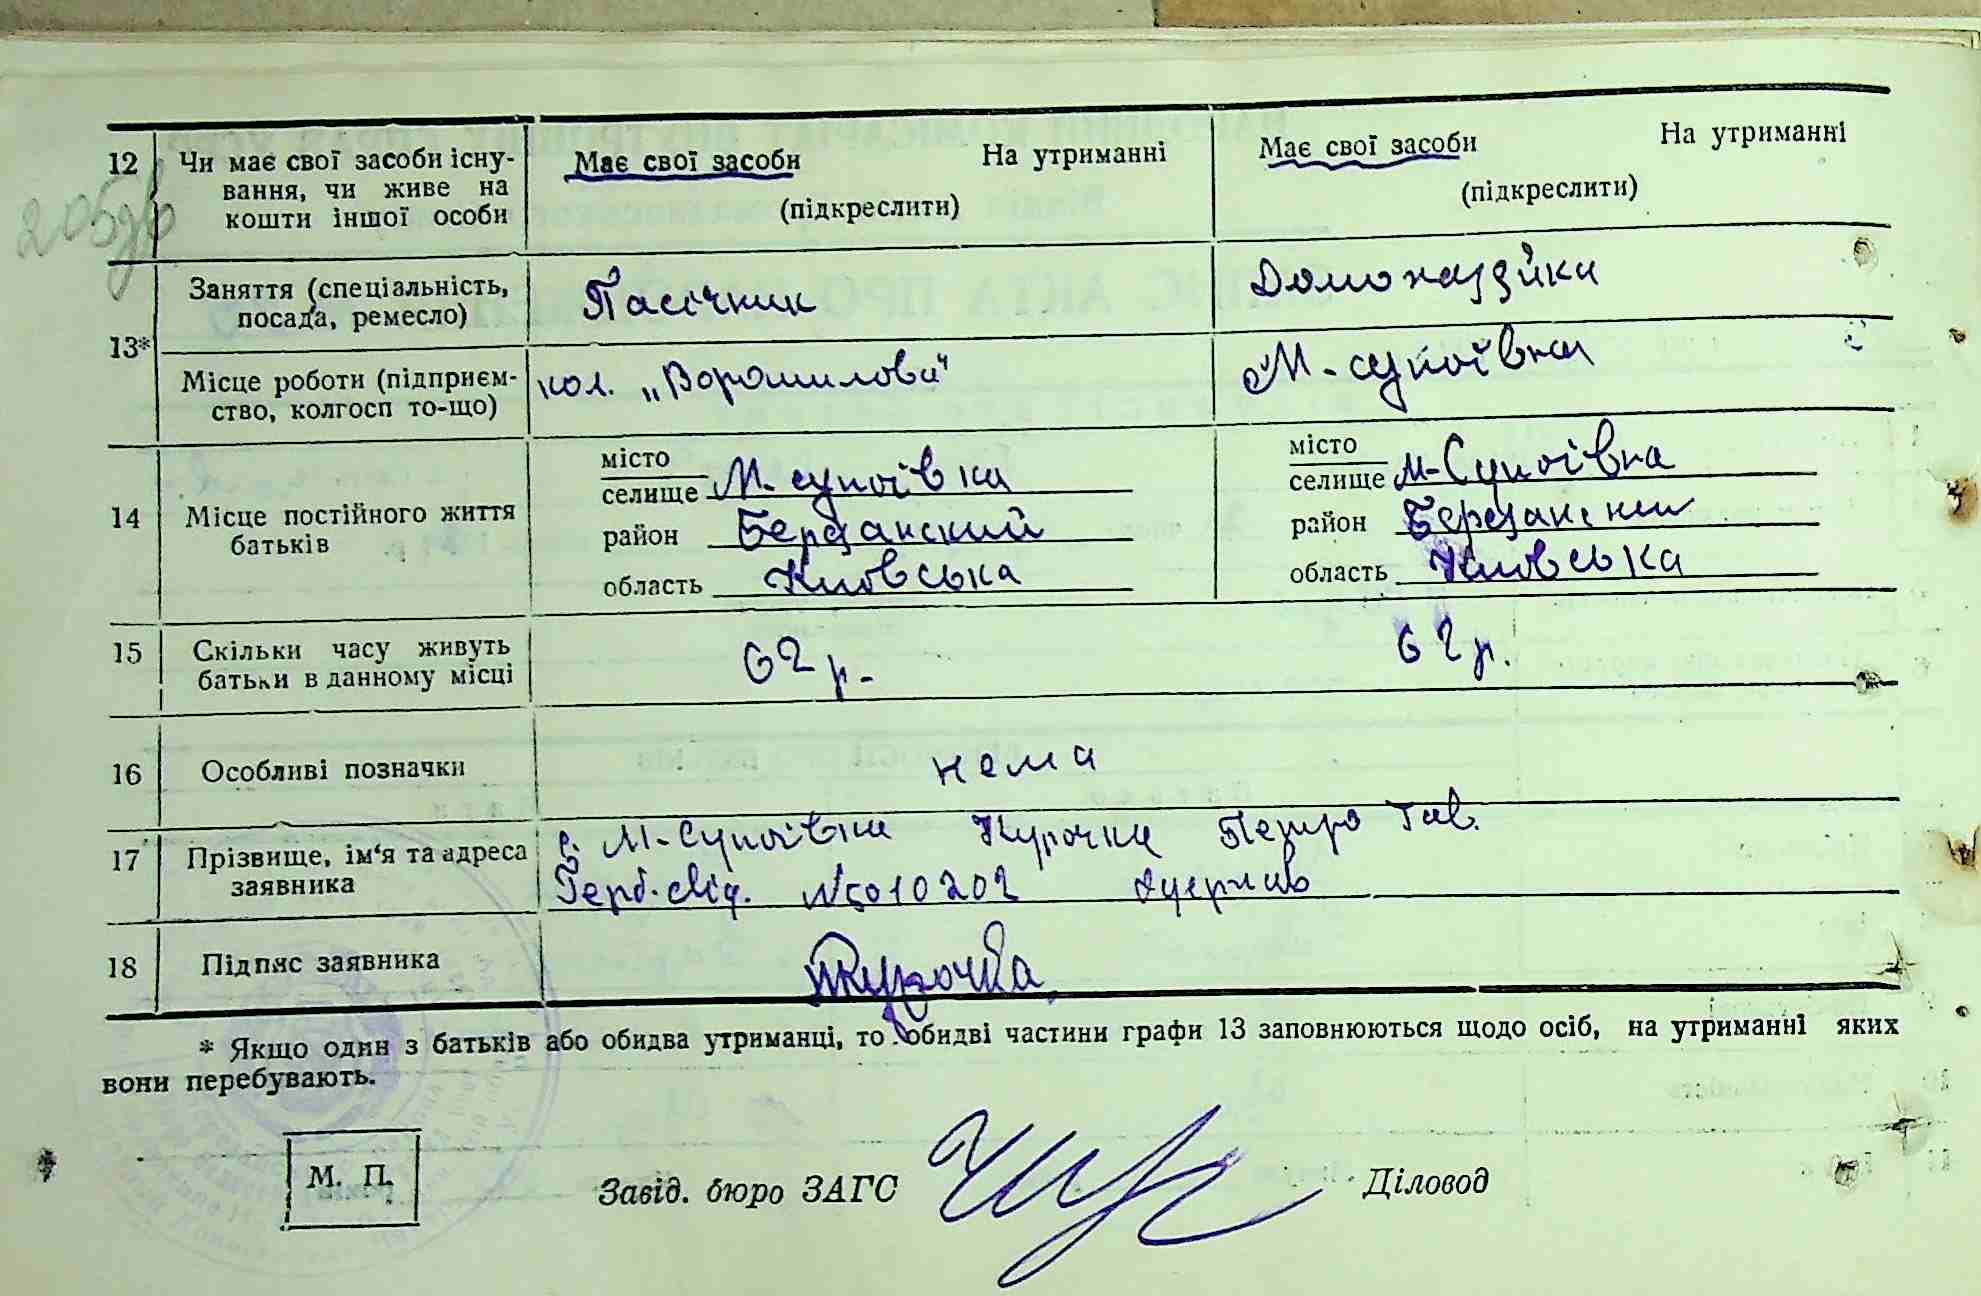 12 Чи має свої засоби існу- Має свої засоби На утриманні Має свої засоби На утриманні
вання, чи живе на (підкреслити) (підкреслити)
кошти іншої особи
13* Заняття (спеціальність, Пасічник Домохазяйка
посада, ремесло)
Місце роботи (підприєм- кол. „Ворошилова" М-супоївка
ство, колгосп то-що)
14 Місце постійного життя
батьків
місто
селище М-супоївка
район Березанский
область Київська
місто
селище М-Супоївка
район Березанский
область Київська
15 Скільки часу живуть 62 р. 62 р.
батьки в данному місці
16 Особливі позначки нема
17 Прізвище, ім'я та адреса с. М-Супоївка Курочка Петро Гав.
заявника Герб. свід. №5010202
18 Підпис заявника Курочка
* Якщо один з батьків або обидва утриманці, то обидві частини графи 13 заповнюються щодо осіб, на утриманні яких
вони перебувають.
М. П. Завід. бюро ЗАГС Діловод